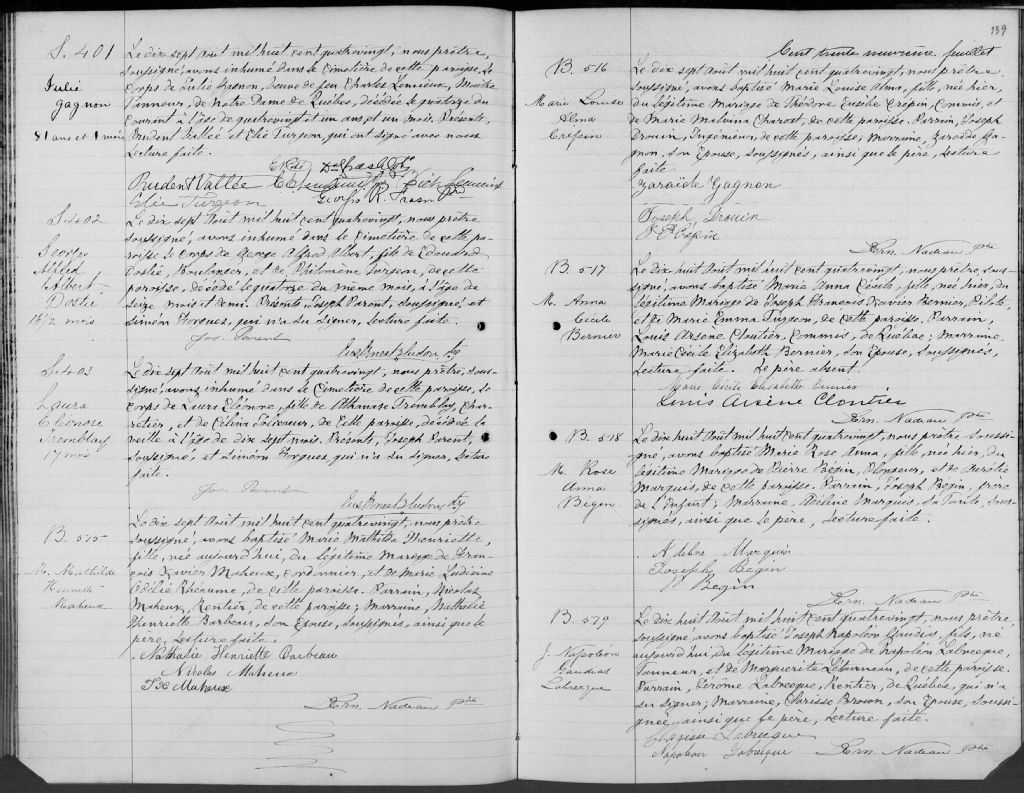 S. 401
Julie
Gagnon
81 ans et 1 mois
Le dix sept Août mil huit cent quatrevingt, nous prêtre,
soussigné, avons inhumé dans le Cimetière de cette paroisse, le
corps de Julie Gagnon, veuve de feu Charles Lemieux, Maître
Tanneur, de Notre Dame de Québec, décédée le quatorze du
courant à l'âge de quatrevingt et un ans et un mois. Présents,
Prudent Vallée et Elie Turgeon, qui ont signé avec nous
Lecture faite.
Prudent Vallée
Elie Turgeon
S. 402
Georges
Alfred
Albert
Dostie
16 1/2 mois
Le dix sept Août mil huit cent quatrevingt, nous prêtre
soussigné, avons inhumé dans le Cimetière de cette pa-
roisse le corps de George Alfred Albert, fils de Edouard
Dostie, Boulanger, et de Philomène Turgeon, de cette
paroisse, décédé le quatorze du même mois, à l'âge de
seize mois et demi. Présents, Joseph Parent, soussigné, et
Siméon Forgues, qui n'a su signer, Lecture faite.
Jos. Parent
S. 403
Laura
Eléonore
Tremblay
17 mois
Le dix sept Août mil huit cent quatrevingt, nous prêtre, sous-
signé, avons inhumé dans le Cimetière de cette paroisse, le
corps de Laura Eléonore, fille de Athanase Tremblay, Char-
retier, et de Célina de cette paroisse, décédée la
veille à l'âge de dix sept mois. Présents, Joseph Parent,
soussigné, et Siméon Forgues, qui n'a su signer, Lecture
faite.
Jos. Parent
B. 515
M. Mathilde
Henriette
Maheux
Le dix sept Août mil huit cent quatrevingt, nous prêtre
soussigné, avons baptisé Marie Mathilda Henriette,
fille, née aujourd'hui, du légitime Mariage de Fran-
çois Xavier Maheux, cordonnier, et de Marie Ludivine
Odélie Rhéaume, de cette paroisse. Parrain, Nicolas
Maheux, Rentier, de cette paroisse; Marraine, Nathalie
Henriette Barbeau, son Epouse, soussignés, ainsi que le
père, Lecture faite.
Nathalie Henriette Barbeau
Nicolas Maheux
F X Maheux
Ern. Nadeau Ptre
139
Cent trente neuvième feuillet
B. 516
Marie Louise
Alma
Crespin
Le dix sept Août mil huit cent quatrevingt, nous prêtre,
soussigné, avons baptisé Marie Louise Alma, fille, née hier,
du légitime Mariage de Théodore Eusèbe Crépin, Commis, et
de Marie Malvina Charest, de cette paroisse. Parrain, Joseph
Drouin, Ingénieur, de cette paroisse; Marraine, Zaraïde Ga-
gnon, son Epouse, soussignés, ainsi que le père, Lecture
faite.
Zaraïde Gagnon
Joseph Drouin
Ern. Nadeau Ptre
B. 517
M. Anna
Cécile
Bernier
Le dix huit Août mil huit cent quatrevingt, nous prêtre, sous-
signé, avons baptisé Marie Anna Cécile, fille, née hier, du
légitime Mariage de Joseph François Xavier Bernier, Pilote,
et de Marie Emma Turgeon, de cette paroisse. Parrain,
Louis Arsène Cloutier, Commis, de Québec; Marraine,
Marie Cécile Elizabeth Bernier, son Epouse, soussignés,
Lecture faite. Le père absent.
Marie Cécile Elisabeth Bernier
Louis Arsène Cloutier
Ern. Nadeau Ptre
B. 518
M. Rose
Anna
Bégin
Le dix huit Août mil huit cent quatrevingt, nous prêtre soussi-
gné, avons baptisé Marie Rose Anna, fille, née hier, du
légitime Mariage de Pierre Bégin, et de Aurélie
Marquis, de cette paroisse. Parrain, Joseph Bégin, frère
de l'Enfant; Marraine, Adéline Marquis, sa Tante, sous-
signés, ainsi que le père, Lecture faite.
Adeline Marquis
Joseph Begin
Begin
Ern. Nadeau Ptre
B. 519
J. Napoléon
Gaudias
Labrecque
Le dix huit Août mil huit cent quatrevingt, nous prêtre,
soussigné avons baptisé Joseph Napoléon Gaudias, fils, né
aujourd'hui, du légitime Mariage de Napoléon Labrecque,
Tanneur, et de Marguerite Létourneau, de cette paroisse.
Parrain, Jérôme Labrecque, Rentier, de Québec, qui n'a
su signer; Marraine, Clarisse Brown, son Epouse, soussi-
gnée, ainsi que le père, Lecture faite.
Clarisse Labrecque
Napoléon Labrecque Ern. Nadeau Ptre